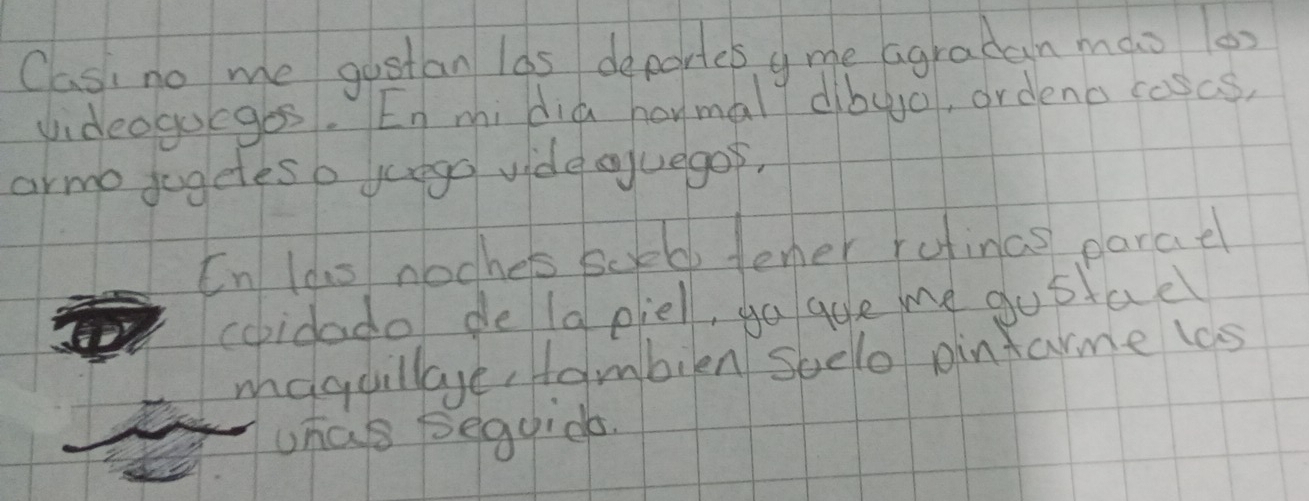 Casi no me gustan los deportes y me agradan mas los
videoguegos. En mi dia normal dibujo, ordeno cosas,
armo jugetes o juego videojuegos,
En las noches suelo tener rutinas para el
cuidado de la piel, ya que me gusta el
maquillaje, tambien suelo pintarme las
uñas seguido.